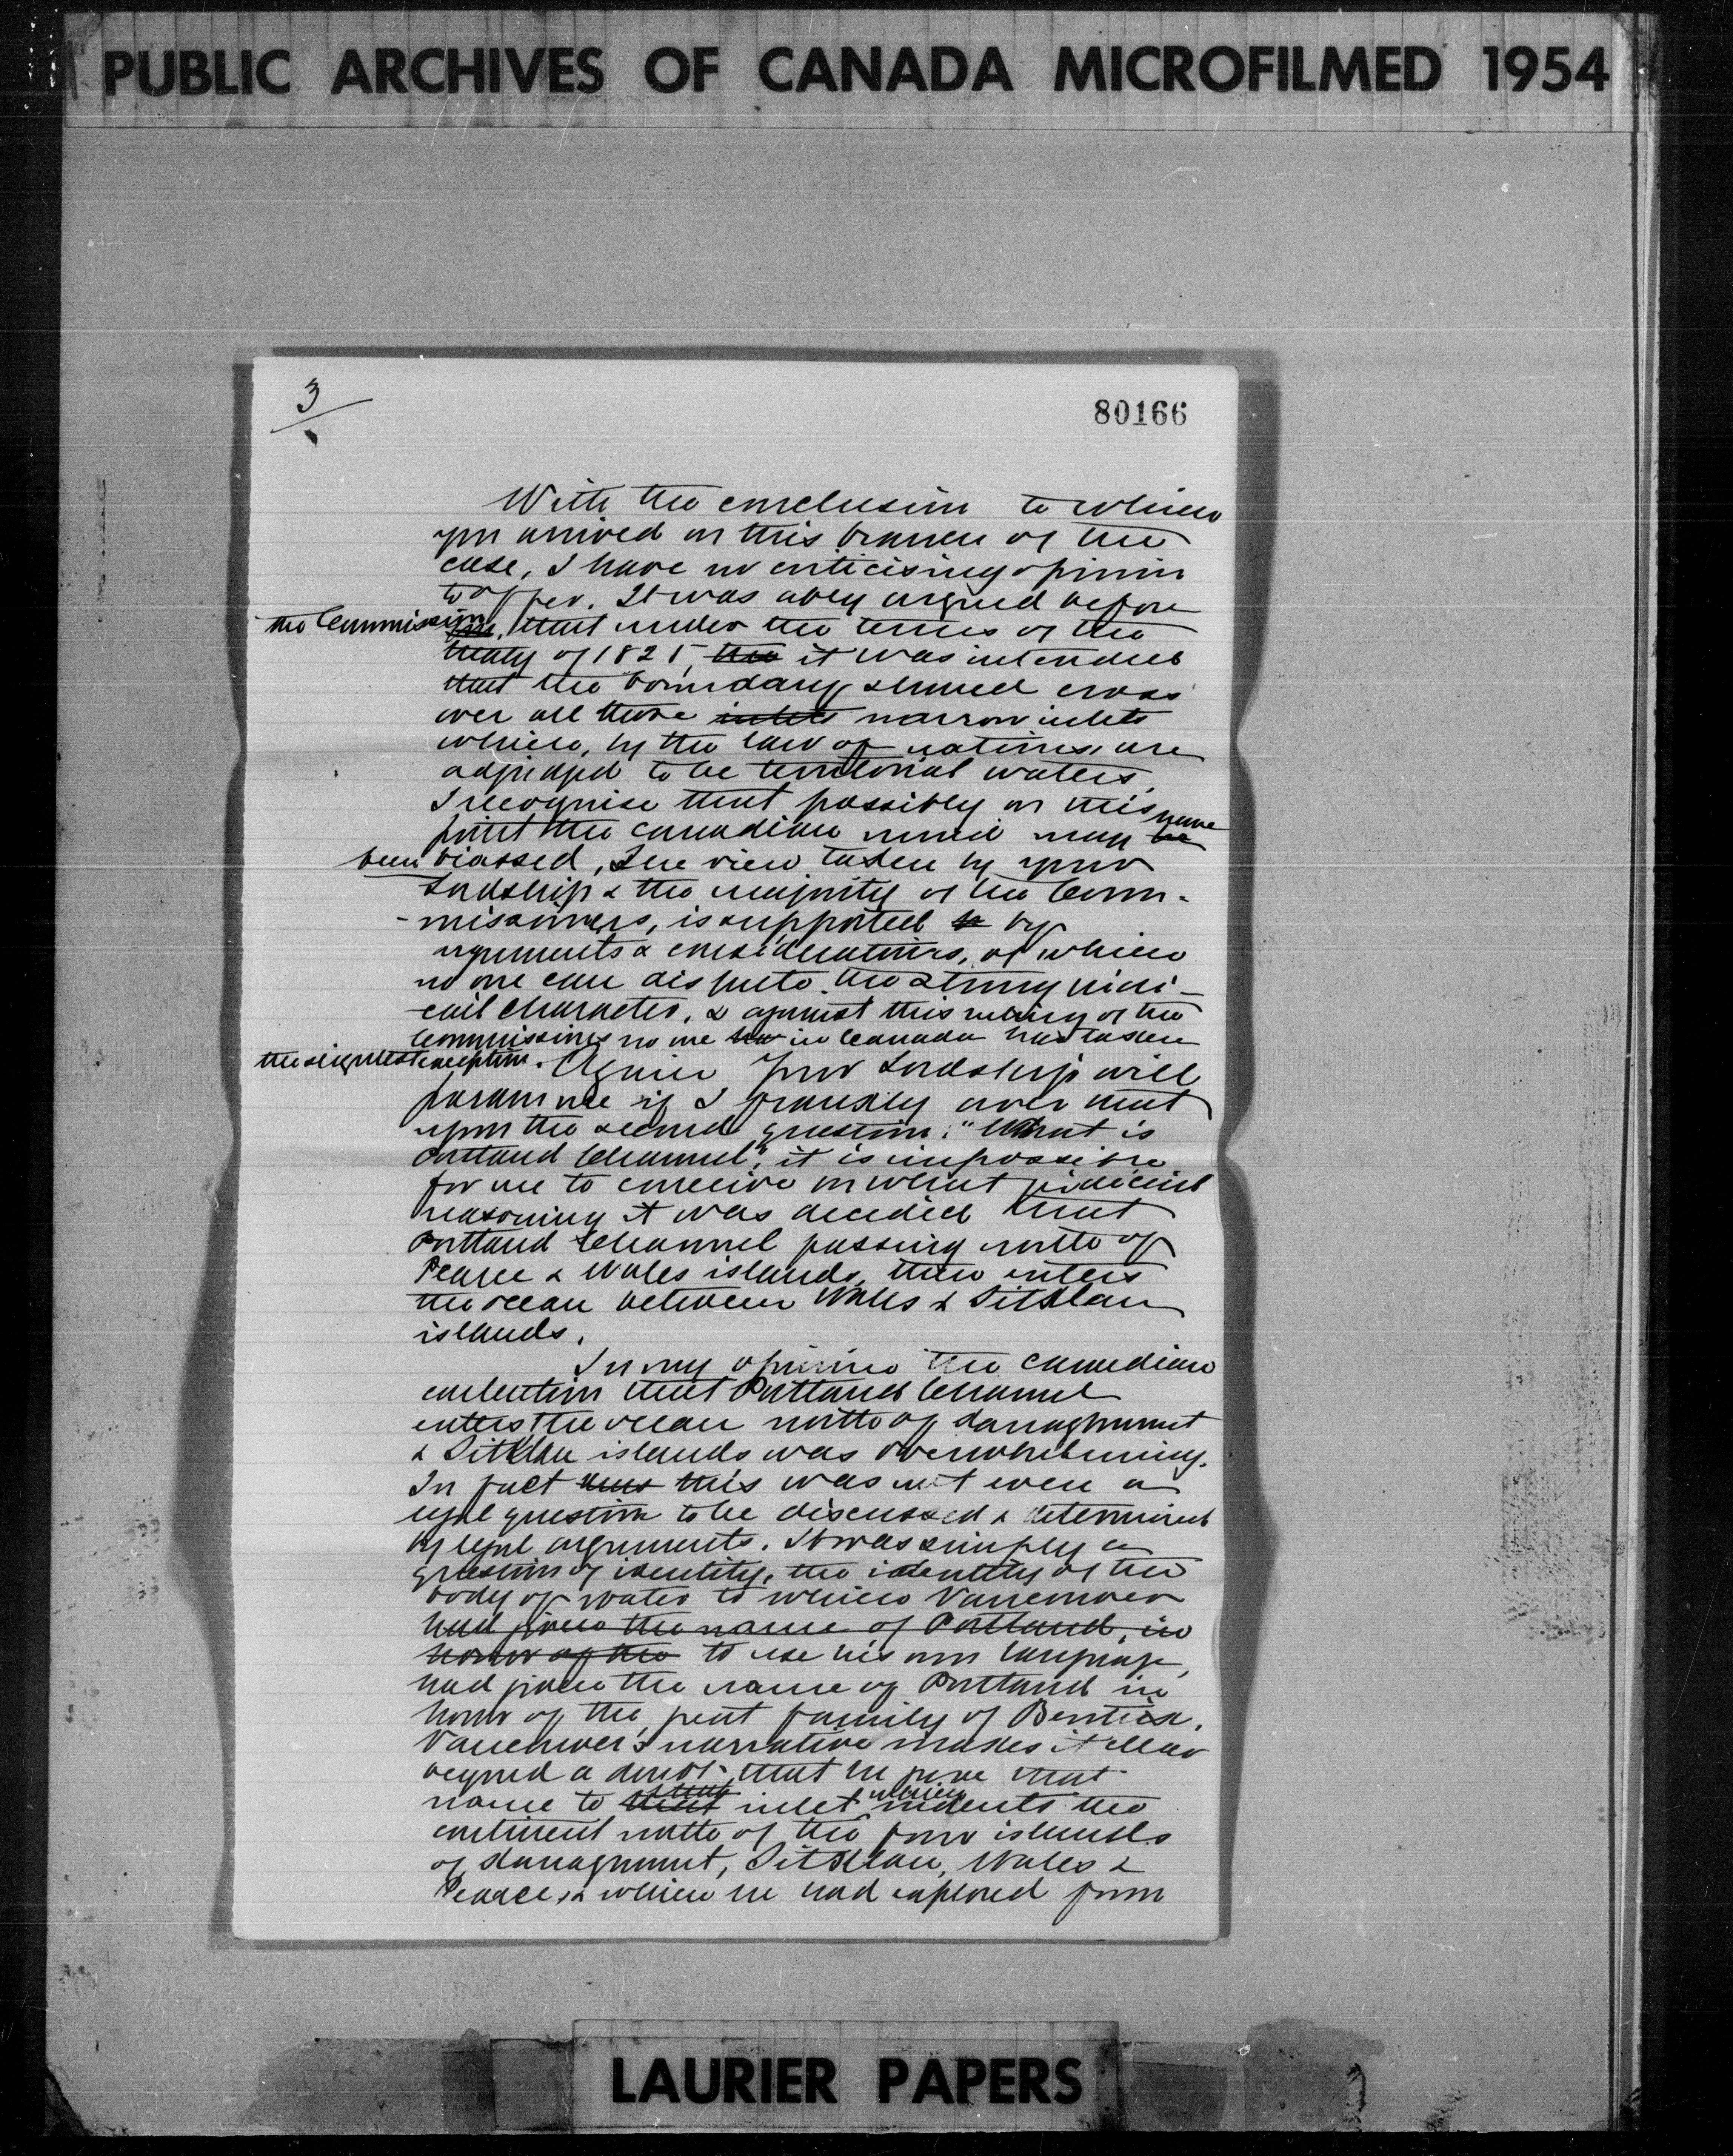 PUBLIC ARCHIVES OF CANADA MICROFILMED 1954
3
80166
With the conclusion to which
you arrived on this branch of the
case, I have no criticising opinion
to offer. It was ably argued before
the Commission, that under the terms of the
treaty of 1825, the it was intended
that the boundary should cross
over all those inlets narrow inlets
which, by the law of nations, are
adjudged to be territorial waters.
I recognise that possibly on this
point the Canadian mind may be have
been biassed, The view taken by your
Lordship & the majority of the Com-
-missioners, is supported by
arguments & considerations, of which
no one can dispute the strong judi-
-cial character, & against this ruling of the
Commissioners no one in Canada has taken
the slightest exception. Again Your Lordship will
pardon me if I frankly aver that
upon the second question: "What is
Portland Channel", it is impossible
for me to conceive on what judicial
reasoning it was decided that
Portland Channel passing north of
Pearse & Wales islands, then enters
the ocean between Wales & Sitklan
islands.
In my opinion the Canadian
contention that Portland Channel
enters the ocean north of Kanaghunut
& Sitklan islands was overwhelming.
In fact this was not even a
legal question to be discussed & determined
by legal arguments. It was simply a
question of identity, the identity of the
body of water to which Vancouver
had given the name of Portland, in
honor of the to use his own language,
had given the name of Portland in
honor of the great family of Bentick.
Vancouver's narrative makes it clear
beyond a doubt that he gave that
name to that inlet which indents the
continent north of the four islands
of Kanagunut, Sitklan, Wales &
Pearse, & which he had explored from
LAURIER PAPERS